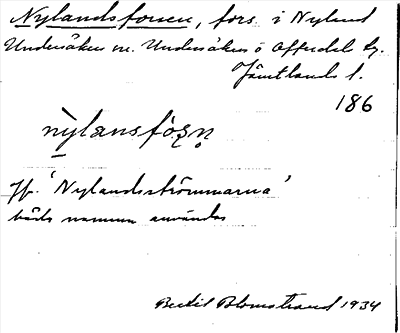 Nylandsforsen, fors i Nyland
Undersåker sn. Undersåkers o Offerdal tg.
Jämtlands l.
186
nỳlansfòʂn̥
Jf. 'Nylandsströmmarna'
båda namnen användas
Bertil Blomstrand 1934